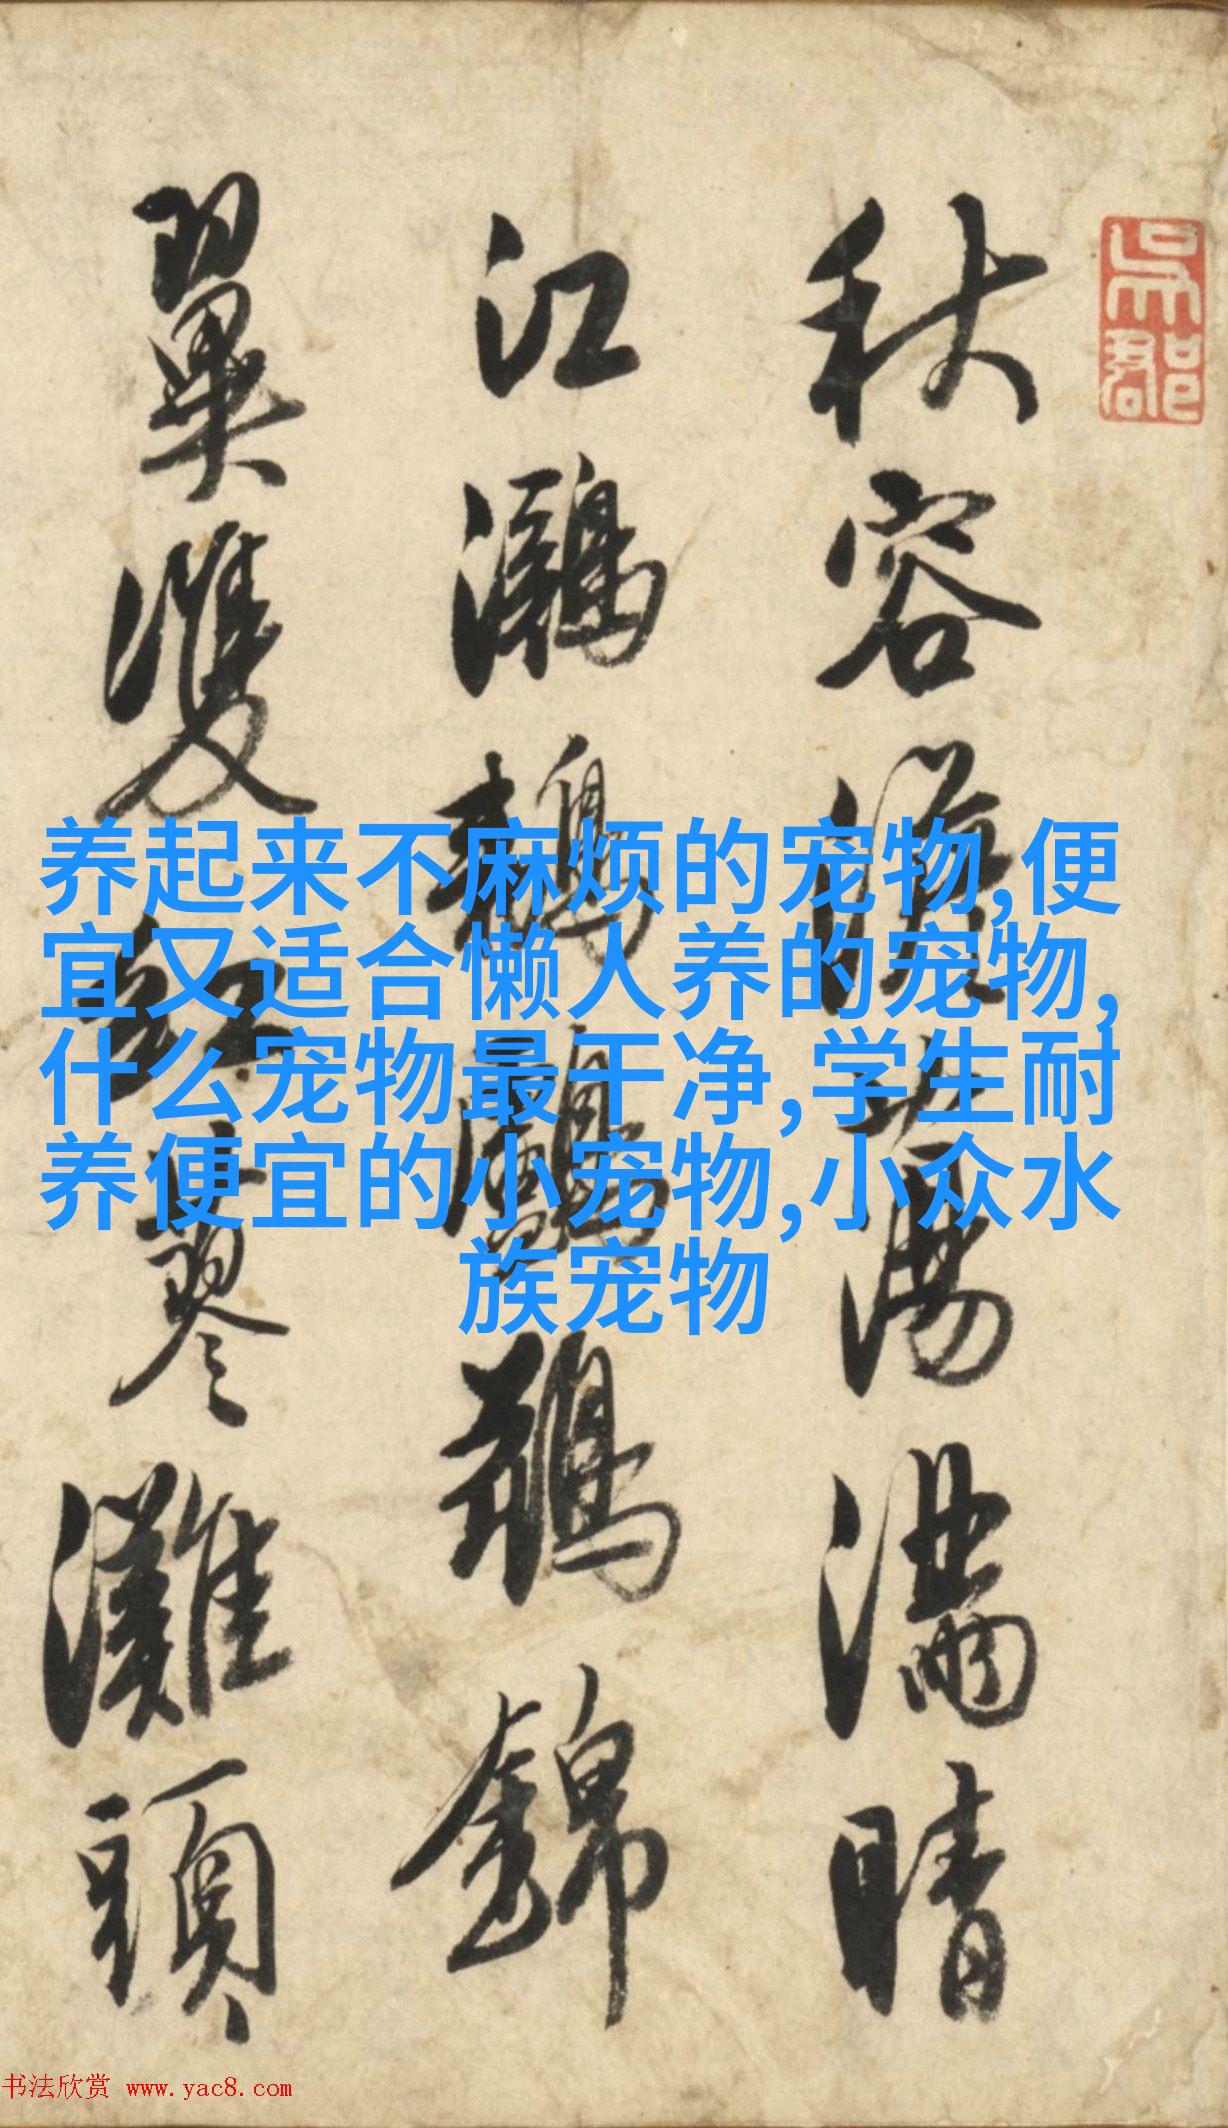 秋容漠蕩滿晴
江鸂鶒鸕鶿錦
翼雙紅蓼灘頭
吳郡
养起来不麻烦的宠物,便
宜又适合懒人养的宠物,
什么宠物最干净,学生耐
养便宜的小宠物,小众水
族宠物
书法欣赏 www.yac8.com